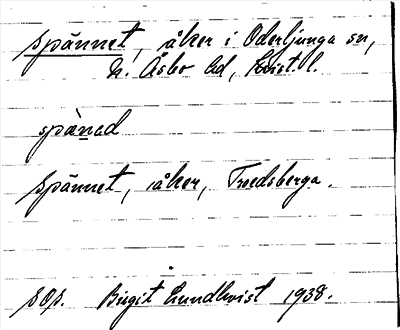 Spännet, åker i Oderljunga sn,
N. Åsbo hd, Krist. l.
spänad
Spännet, åker, Troedsberga.
SOp. Birgit Lundkvist 1938.